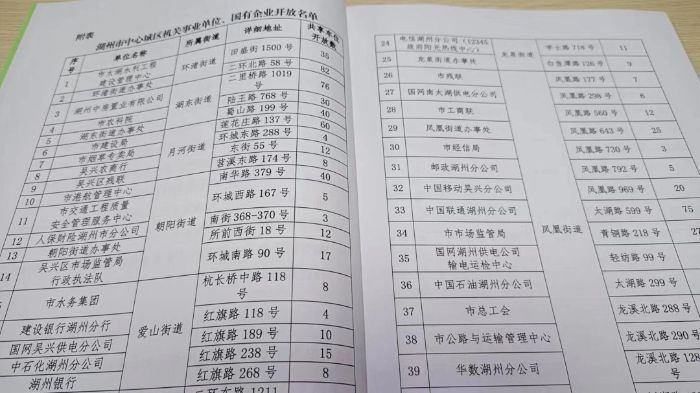 附表
湖州市中心城区机关事业单位、国有企业开放名单
序号 单位名称 所属街道 详细地址 共享车位开放数
1 市太湖水利工程建设管理中心 环渚街道 田盛街1500号 35
2 环渚街道办事处 二环北路58号 82
3 湖州中房置业有限公司 湖东街道 二里桥路1019号 76
4 市农科院 陆王路768号 30
5 湖东街道办事处 蜀山路199号 40
6 市建设局 月河街道 莲花庄路137号 60
7 市烟草专卖局 环城东路288号 4
8 吴兴农商行 东街55号 12
9 吴兴区残联 苕溪东路174号 8
10 市港航管理中心 朝阳街道 南华路379号 40
11 市交通工程质量安全管理服务中心 环城西路167号 5
12 人保财险湖州市分公司 南街368-370号 3
13 朝阳街道办事处 所前西街18号 12
14 吴兴区市场监管局行政执法队 环城南路90号 17
市水务集团 爱山街道 杭长桥中路118号 8
建设银行湖州分行 红旗路118号 4
国网吴兴供电分公司 红旗路189号 10
中石化湖州分公司 红旗路238号 15
湖州银行 红旗路268号 8
二环东路1211
24 电信湖州分公司（12345政府阳光热线中心） 龙泉街道 学士路718号 11
25 龙泉街道办事处 白鱼潭路126号 9
26 市残联 凤凰街道 凤凰路177号 7
27 国网南太湖供电分公司 凤凰路298号 6
28 市工商联 凤凰路560号 12
29 凤凰街道办事处 凤凰路643号 25
30 市经信局 凤凰路730号 3
31 邮政湖州分公司 凤凰路792号 5
32 中国移动吴兴分公司 凤凰路969号 20
33 中国联通湖州分公司 太湖路599号 75
34 市市场监管局 青铜路218号 27
35 国网湖州供电公司输电运检中心 轻纺路99号
36 中国石油湖州分公司 太湖路299号
37 市总工会 龙溪北路288号
38 市公路与运输管理中心 龙溪北路290号
39 华数湖州分公司 龙溪北路128号